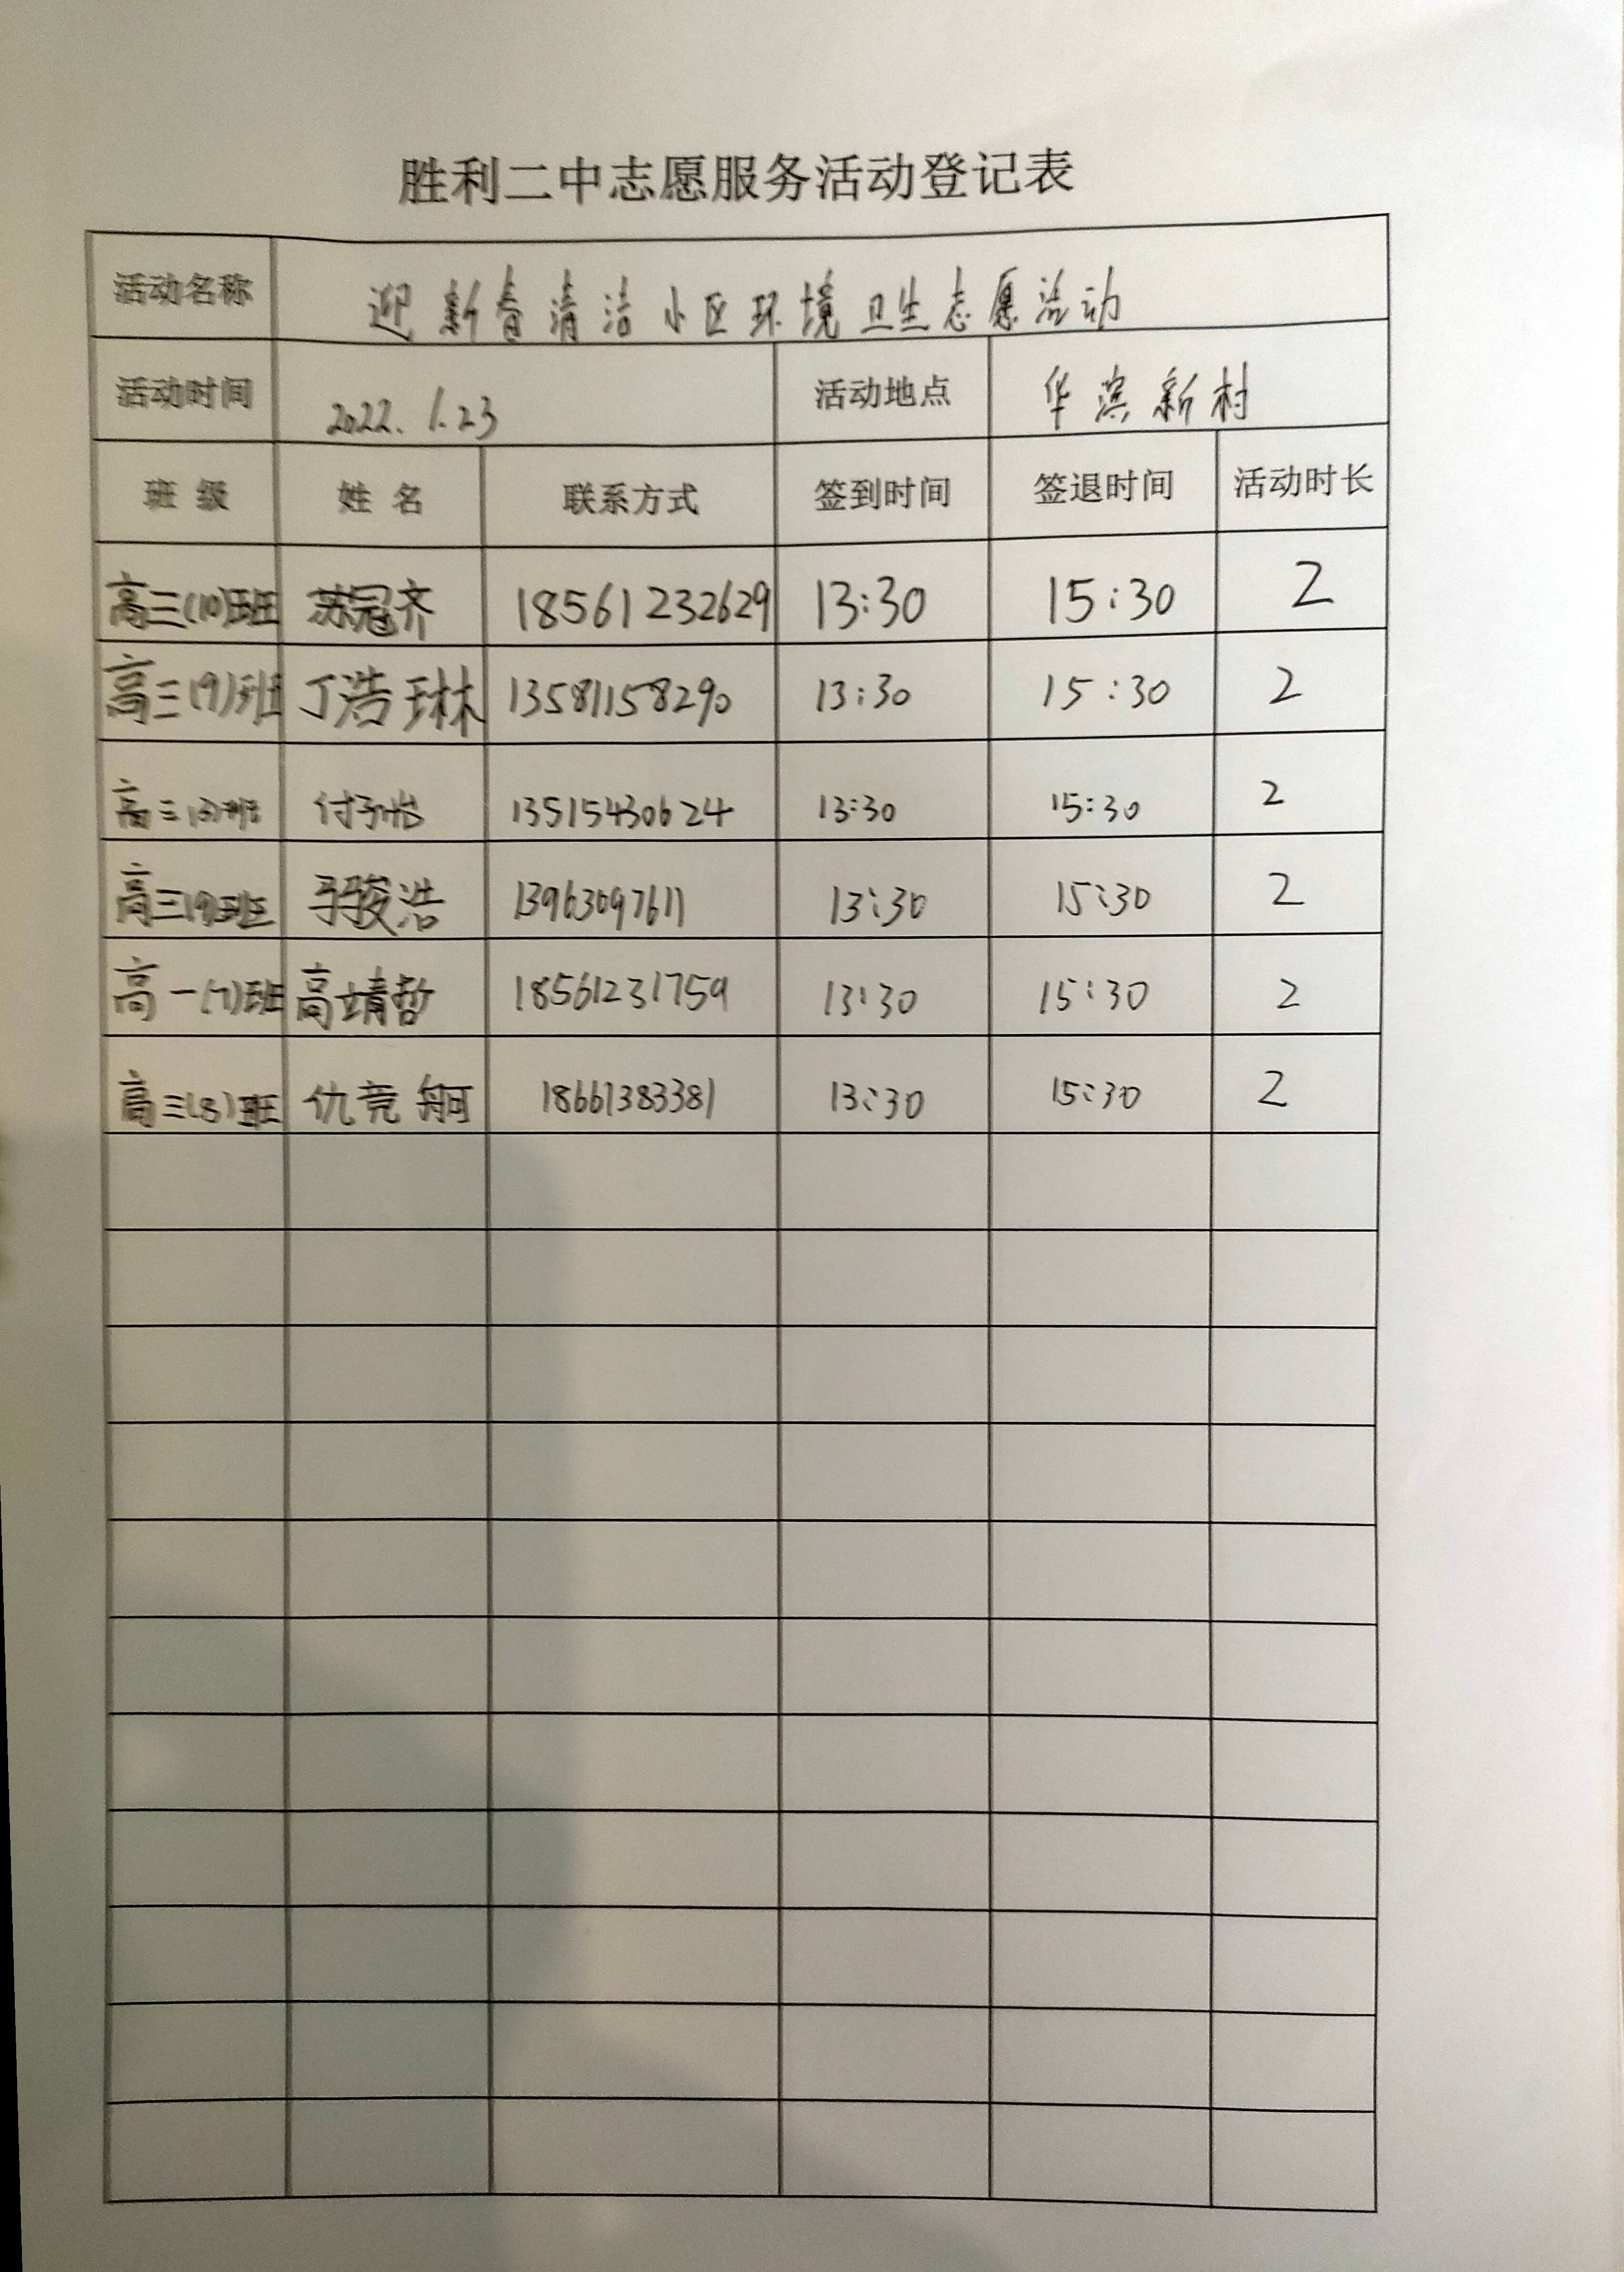 胜利二中志愿服务活动登记表
活动名称 迎新春清洁小区环境卫生志愿活动
活动时间 2022.1.23 活动地点 华滨新村
班 级 姓 名 联系方式 签到时间 签退时间 活动时长
高三(10)班 苏冠齐 18561232629 13:30 15:30 2
高三(9)班 丁浩琳 13581158290 13:30 15:30 2
高三 付子怡 13515430624 13:30 15:30 2
高三(9)班 于骏浩 13963097611 13:30 15:30 2
高一(7)班 高靖哲 18561231759 13:30 15:30 2
高三(8)班 仇竞舸 18661383381 13:30 15:30 2